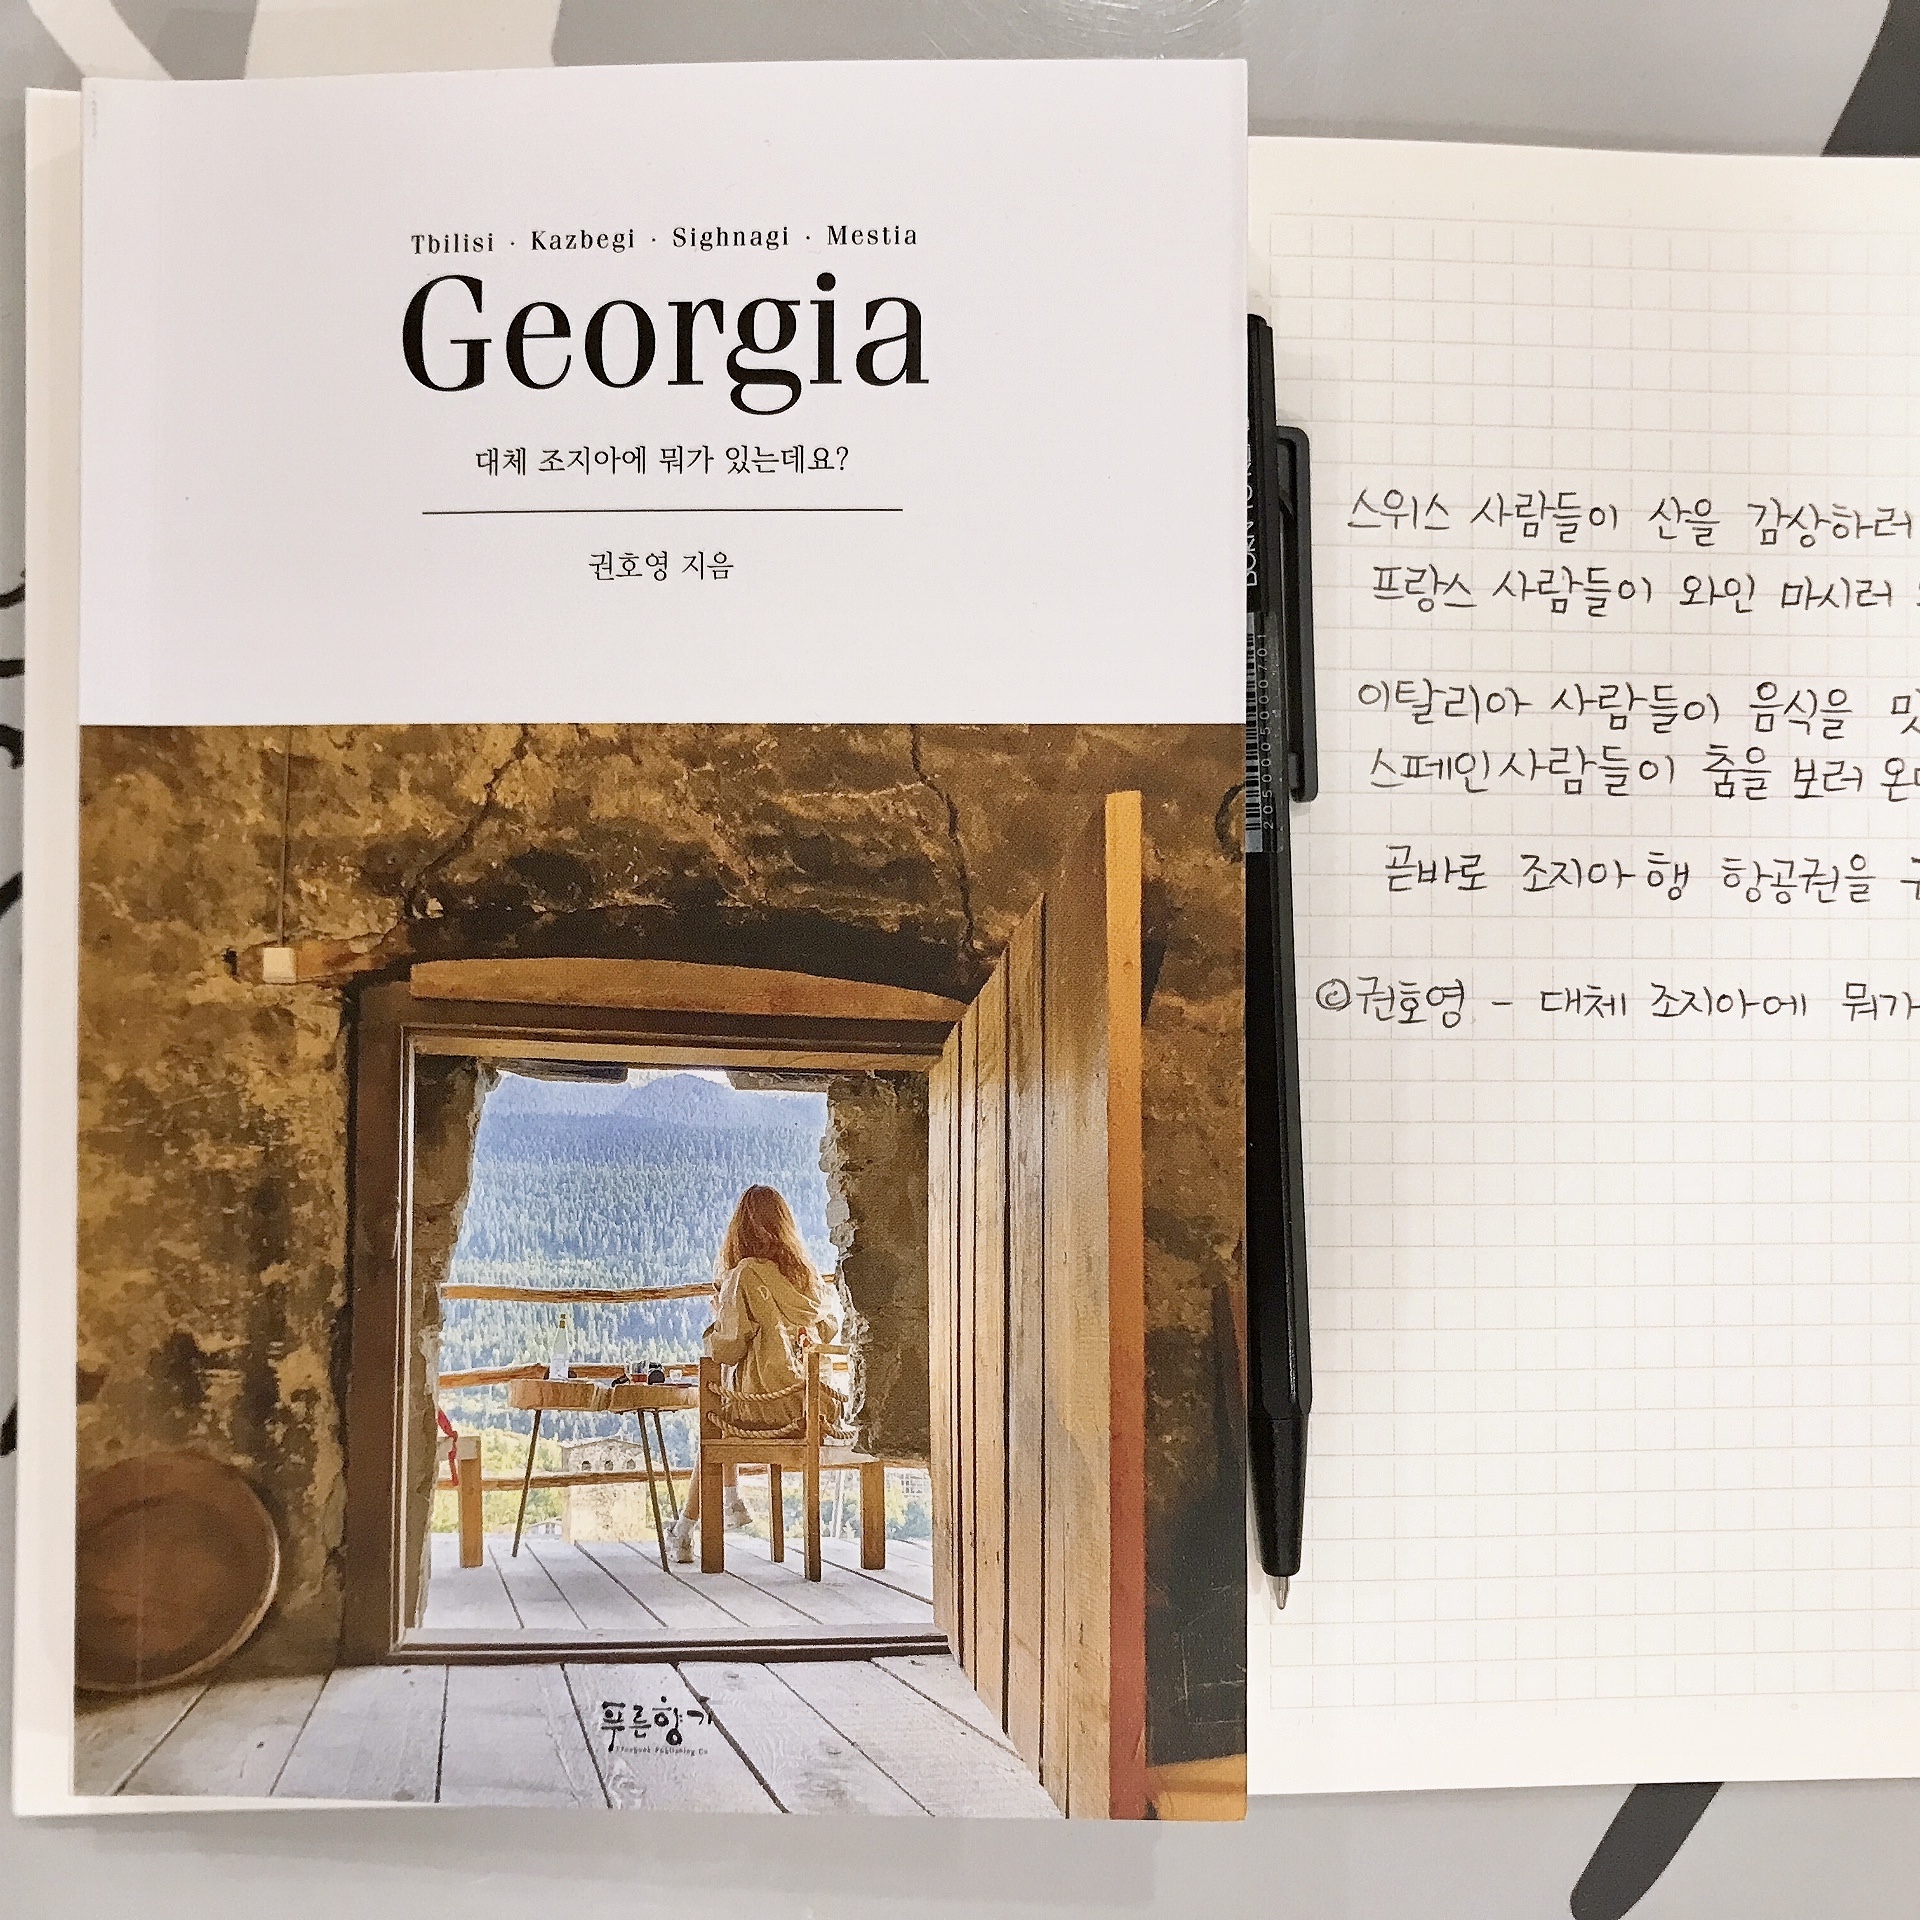 Tbilisi · Kazbegi · Sighnagi · Mestia
Georgia
대체 조지아에 뭐가 있는데요?
권호영 지음
푸른향기
스위스 사람들이 산을 감상하러
프랑스 사람들이 와인 마시러
이탈리아 사람들이 음식을
스페인 사람들이 춤을 보러
곧바로 조지아행 항공권을
©권호영 - 대체 조지아에 뭐가
2050005000701